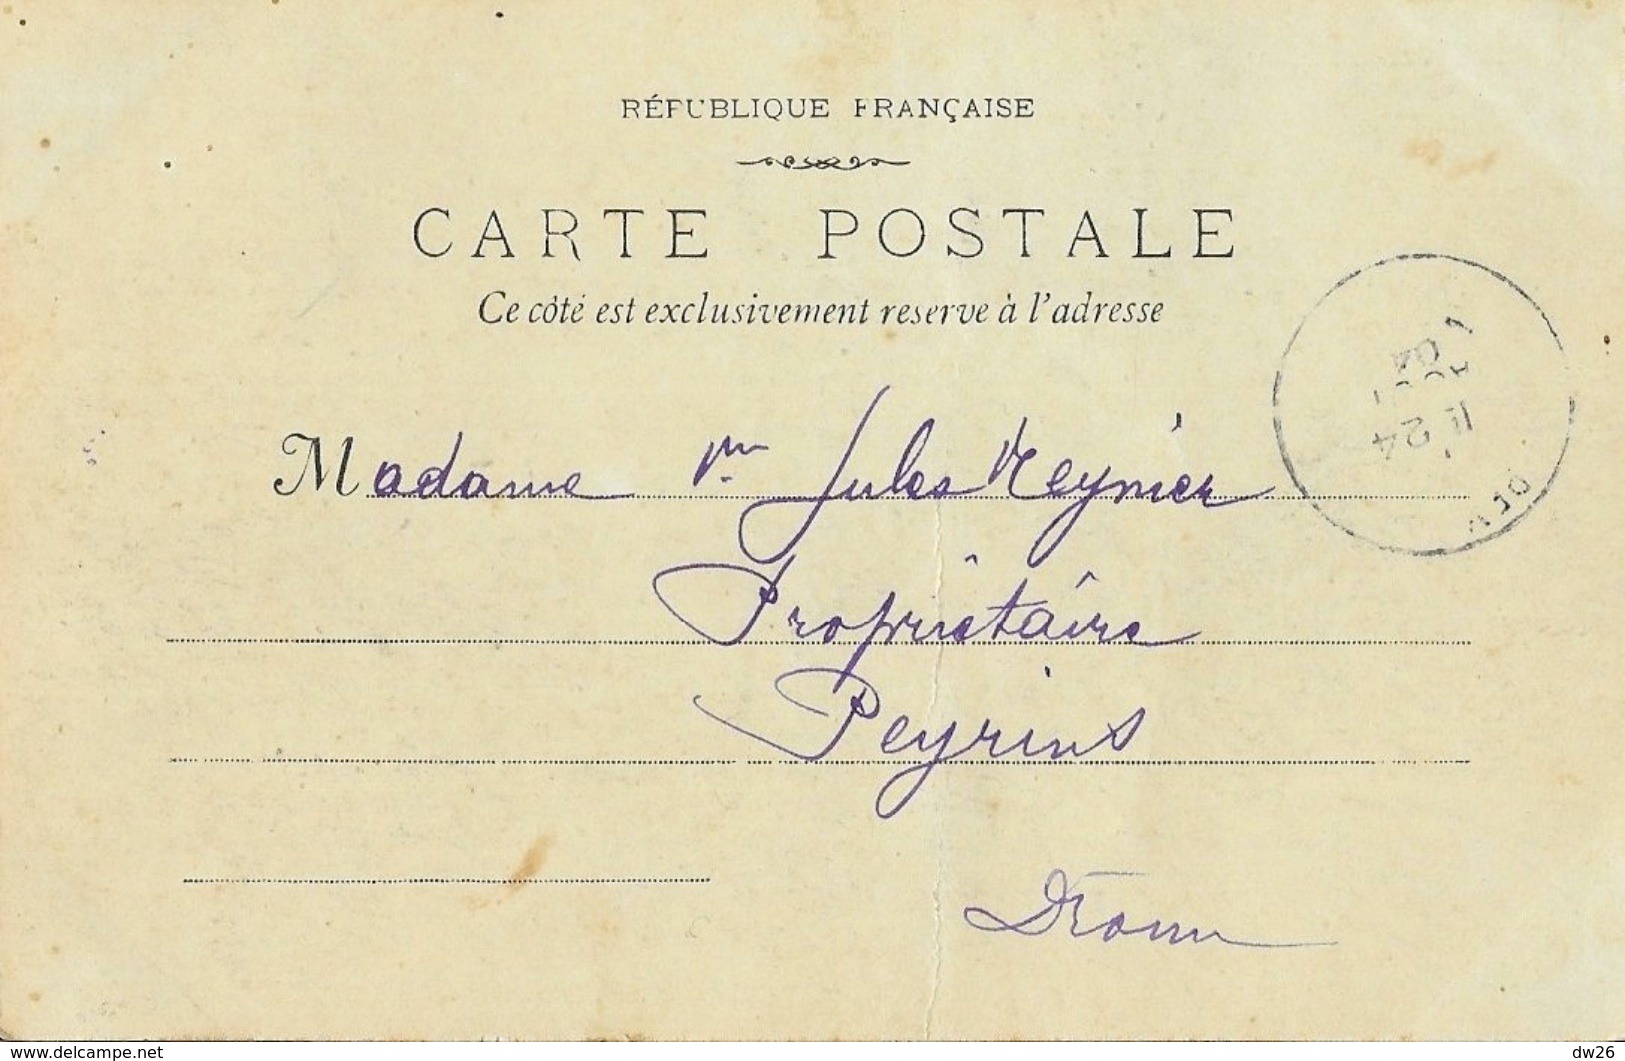 RÉPUBLIQUE FRANÇAISE
CARTE POSTALE
Ce côté est exclusivement reserve à l'adresse
Madame Vve Jules Reynier
Propriétaire
Peyrins
Drome
24
04
www.delcampe.net
dw26